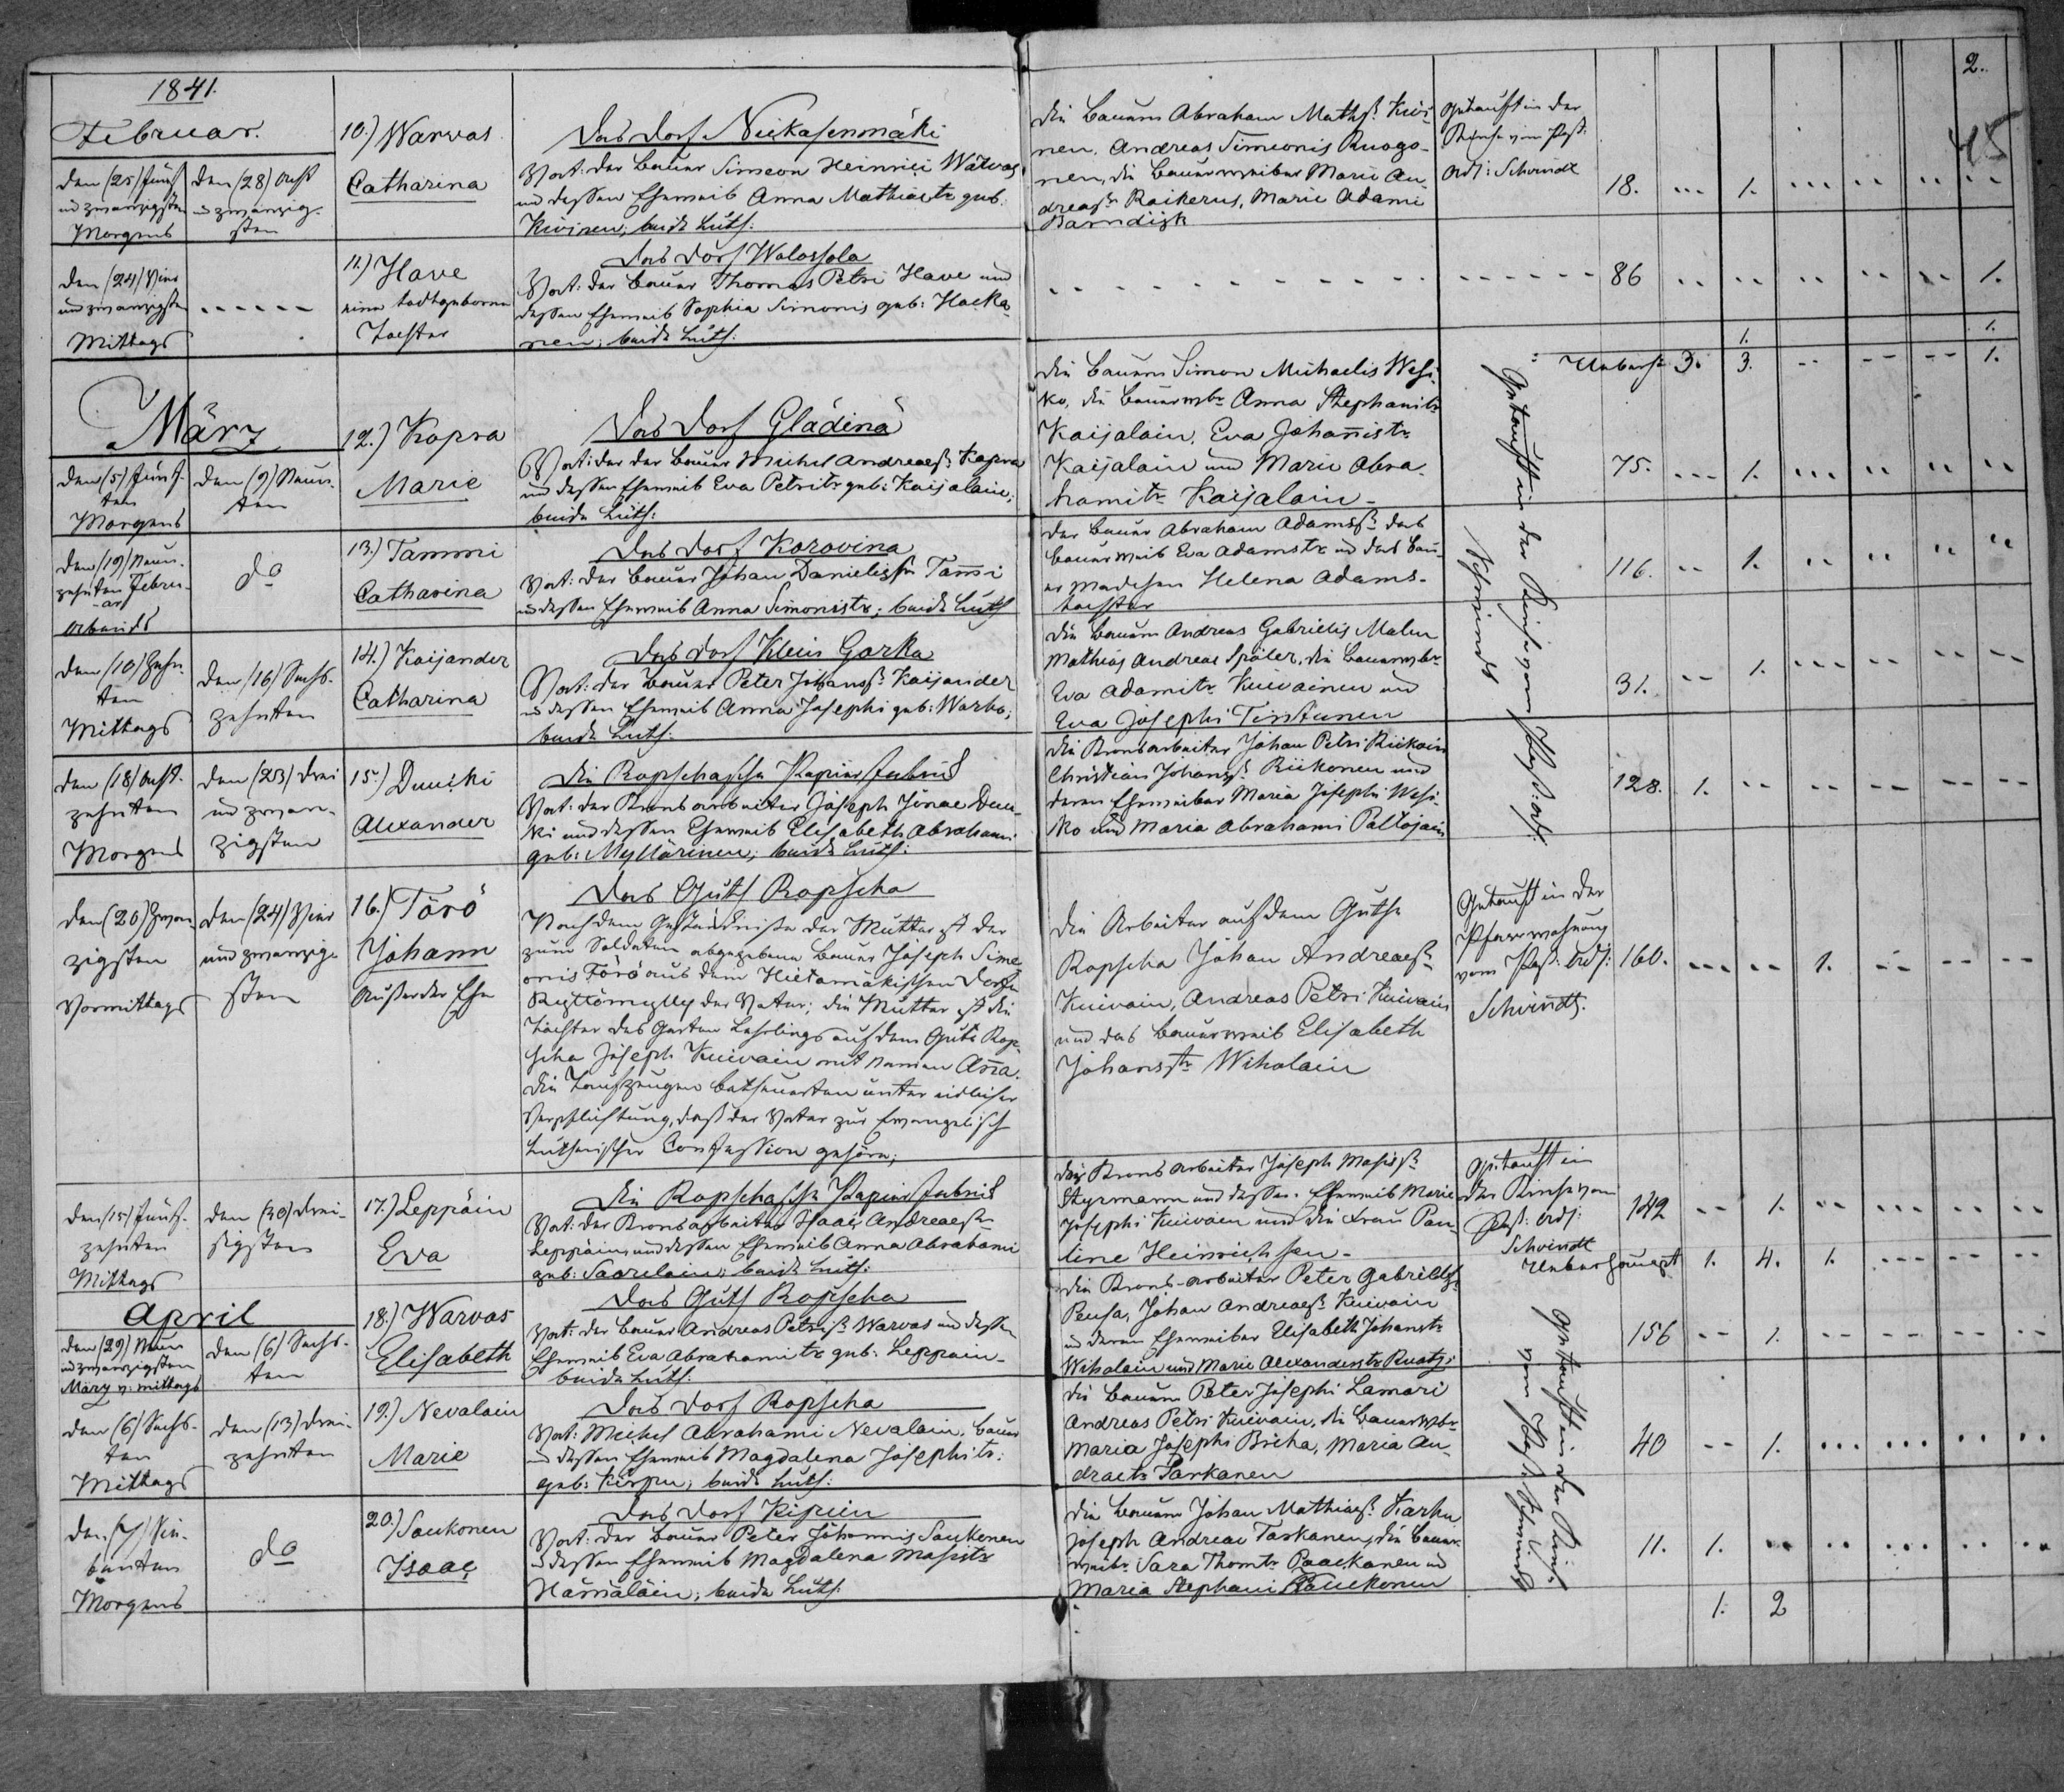 1841.
2.
45
Februar.
den (25) fünf
und zwanzigsten
Morgens
den (28) acht
u zwanzig-
sten
10.) Warvas
Catharina
Das Dorf Neikasenmäki
Vat: der Bauer Simeon Heinrici Warvas
und dessen Eheweib Anna Mathiaetr geb.
Kivinen; beide Luth:
die Bauern Abraham Mathsß. Kivi-
nen, Andreas Simeonis Ruogo-
nen, die Bauerweiber Marie An-
dreaß Raikerus, Marie Adami
Getauft in der
Kirche vom Past:
Adj: Schvindt
18. 1.
den (24) Vier
und zwanzigsten
Mittags
11.) Have
eine todtgeborne
Tochter
Das Dorf Walossola
Vat: der Bauer Thomas Petri Have und
dessen Eheweib Sophia Simonis geb: Hacka-
nen; beide Luth:
86 1.
1. 1.
3. 3. 1.
März
den (5) Fünf-
ten
Morgens
den (9) Neun-
ten
12.) Kopra
Marie
Das Dorf Glädinä
Vat: der der Bauer Michel Andreaeß. Kopra
und dessen Eheweib Eva Petritr geb: Kaijalain;
beide Luth:
die Bauern Simon Michaelis Wesi-
ko, die Bauerwbr Anna Stephanitr
Kaijalain, Eva Johannistr
Kaijalain und Marie Abra-
hamitr Kaijalain
Getauft in der Kirche vom Past: Adj:
Schvindt
75. 1.
den (19) Neun-
zehnten Febru-
ar
Abends
do
13.) Tammi
Catharina
Das Dorf Korovina
Vat: der Bauer Johan Danielisß Tam̄i
u dessen Eheweib Anna Simonistr; beide Luth
der Bauer Abraham Adamsß das
Bauerweib Eva Adamstr und das Bau-
er Madchen Helena Adams-
tochter
116. 1.
den (10) Zehn-
ten
Mittags
den (16) Sechs-
zehnten
14.) Kaijander
Catharina
Das Dorf Klein Gorka
Vat: der Bauer Peter Johansß Kaijander
u dessen Eheweib Anna Josephi geb: Warho;
beide Luth:
die Bauern Andreas Gabrielis Malm
Mathias Andreae Späler, die Bauerwbr
Eva Adamitr Kuivainen und
Eva Josephi Tirstunen
31. 1.
den (18) Acht-
zehnten
Morgens
den (23) Drei
und zwan-
zigsten
15.) Duuiki
Alexander
Die Ropschasche Papierfabrik
Vat: der Kronsarbeiter Joseph Jonae Duu-
ki und dessen Eheweib Elisabeth Abrahami
geb: Myllärinen; beide Luth:
die Kronsarbeiter Johan Petri Riikain
Christian Johansß. Riikonen und
deren Eheweiber Maria Josephi Wesi-
ko und Maria Abrahami Paltojain
128. 1.
den (20) Zwan-
zigsten
Vormittags
den (24) Vier
und zwanzig-
sten
16.) Törö
Johann
Außer der Ehe
Das Guth Ropscha
Nach dem Geständnisse der Mutter ist der
zum Soldaten abgegebene Bauer Joseph Sime-
onis Törö aus dem Hietamäkischen Dorfe
der Vater; die Mutter ist die
Tochter des Garten Lehrlings auf dem Gute Rop-
scha Joseph Kuivain mit Namen An̄a.
Die Taufzeugen betheuerten unter eidlicher
Verpflichtung, daß der Vater zur Evangelisch
Lutherischen Confession gehöre;
Die Arbeiter auf dem Guthe
Ropscha Johan Andreaeß
Kuivain, Andreas Petri Kuivain
und das Bauerweib Elisabeth
Johanstr Wiholain
Getauft in der
Pfarrwohnung
vom Past: Adj:
Schvindt.
160. 1.
den (15) Fünf-
zehnten
Mittags
den (30) Drei-
sigsten
17.) Leppäin
Eva
Die Ropschasche Papierfabrik
Vat: der Kronsarbeiter Isaac Andreaeß
Leppäin und dessen Eheweib Anna Abrahami
geb: Saarelain; beide Luth:
der Kronsarbeiter Joseph Mosisß
Styrmann und dessen Eheweib Marie
Josephi Kuivain und die Frau Pau-
line Heinrichsen
Getauft in
der Kirche vom
Past: Adj:
Schvindt
142 1.
Ueberhaupt 1. 4. 1.
April
den (29) Neun
und zwanzigsten
März v: mittags
den (6) Sechs-
ten
18.) Warvas
Elisabeth
Das Guth Ropscha
Vat: der Bauer Andreas Petrisß Warvas und dessen
Eheweib Eva Abrahamitr geb: Leppain
beide Luth:
die Krons-Arbeiter Peter Gabrielß.
Pensa, Johan Andreaeß Kuivain
u deren Eheweiber Elisabeth Johanstr
Wiholain und Marie Alexanderstr Ruatzi
Getauft in der Kirche
vom Past: Schvindt
156 1.
den (6) Sechs-
ten
Mittags
den (13) Drei-
zehnten
19.) Nevalain
Marie
Das Dorf Ropscha
Vat: Michel Abrahami Nevalain, Bauer
und dessen Eheweib Magdalena Josephitr:
geb: Kirppu; beide Luth:
die Bauern Peter Josephi Lamari
Andreas Petri Kuivain, die Bauerwbr
Maria Josephi Bricha, Maria An-
draetr Tarkanen
40 1.
den (7) Sie-
benten
Morgens
do
20.) Saukonen
Isaac
Das Dorf Kipein
Vat: der Bauer Peter Johannis Saukonen
u dessen Eheweib Magdalena Mositr
Hämäläin; beide Luth:
die Bauern Johan Mathiaeß. Karhu
Joseph Andreae Taskanen, die Bauer-
weibr Sara Thomtr Paackanen und
Maria Stephani
11. 1.
1. 2